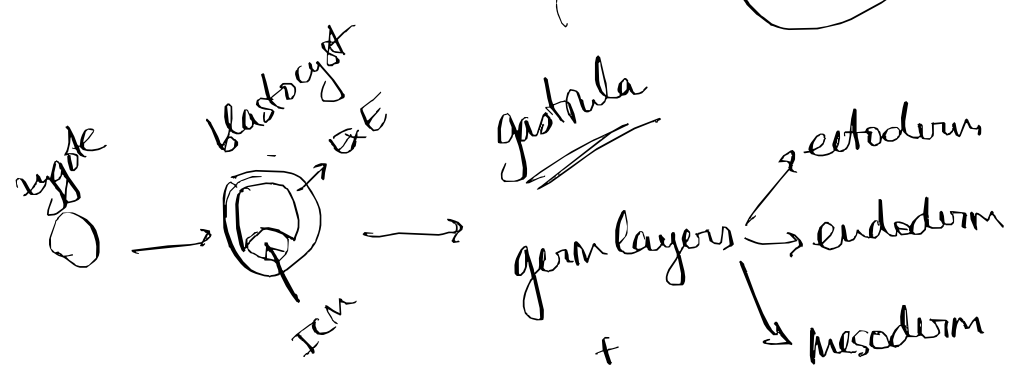 zygote
blastocyst
ExE
ICM
gastrula
germ layers
ectoderm
endoderm
mesoderm
+